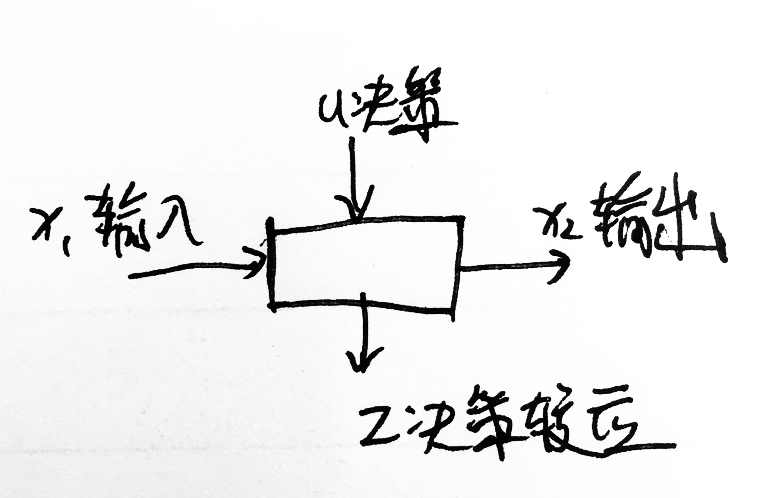 u决策
x₁ 输入
x₂ 输出
Z决策